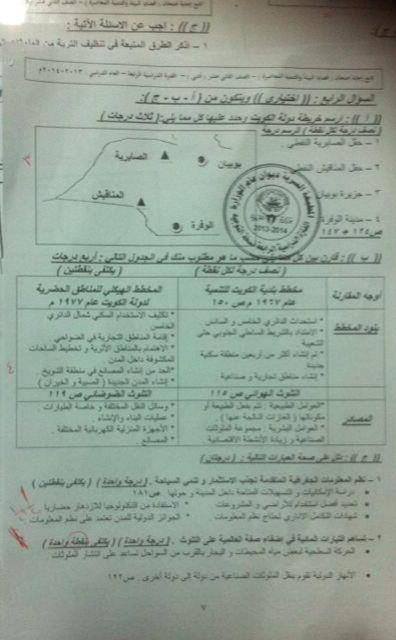 (( ج )) : اجب عن الاسئلة الآتية :
١ - اذكر الطرق المتبعة في تنظيف التربة من
السؤال الرابع : (( اختياري )) ويتكون من ( أ - ب - ج ):
(( أ )) : ارسم خريطة دولة الكويت وحدد عليها كل مما يلي: ( ثلاث درجات )
( نصف درجة لكل نقطة ) الرسم درجة
١ - حقل الصابرية النفطي .
٢ - حقل المناقيش النفطي
٣ - جزيرة بوبيان
٤ - مدينة الوفرة
ص ١٣٥ + ١٤٧
الصابرية
بوبيان
المناقيش
الوفرة
2013-2014
(( ب )) : قارن بين كل مما يلي حسب ما هو مطلوب منك في الجدول التالي : أربع درجات
( نصف درجة لكل نقطة ) ( يكتفى بنقطتين )
أوجه المقارنة
مخطط بلدية الكويت للتنمية عام ١٩٦٧م ص ١٥٠
المخطط الهيكلي للمناطق الحضرية لدولة الكويت عام ١٩٧٧م
بنود المخطط
* استحداث الدائري الخامس و السادس
* الامتداد بالشريط الساحلي الجنوبي حتى الشعيبة
* تم إنشاء أكثر من أربعين منطقة سكنية جديدة
* إنشاء مناطق تجارية و صناعية
* تكثيف الاستخدام السكني شمال الدائري الخامس
* إقامة المناطق التجارية في الضواحي
* الاهتمام بالمناطق الأثرية و تخطيط الساحات المكشوفة داخل المدن
* الحد من إنشاء المصانع في منطقة الشويخ
* إنشاء المدن الجديدة ( الصبية و الخيران )
المصادر
التلوث الهوائي ص ١١٥
التلوث الضوضائي ص ١١٩
* العوامل الطبيعية - تتم بفعل الطبيعة أو مكوناتها ( الغازات الناتجة عنها )
* العوامل البشرية - مجموعة الملوثات الصناعية و زيادة الأنشطة الاقتصادية
* وسائل النقل المختلفة و خاصة الطيارات
* عمليات البناء والإنشاء
* الأجهزة المنزلية الكهربائية المختلفة
* المصانع
(( ج )) : دلل على صحة العبارات التالية : ( درجتان )
١ - نظم المعلومات الجغرافية المتقدمة تجذب الاستثمار و تنمي السياحة . ( درجة واحدة ) ( يكتفى بنقطتين )
دراسة الإمكانيات و التسهيلات المتاحة داخل المدينة و حولها ص ١٨١
تحديد أفضل استخدام للأراضي و المشروعات * الاستفادة من التكنولوجيا للازدهار حضاريا
شهادات التكامل الاداري تحتاج نظم معلومات * الجوائز الدولية للمدن تعتمد على نظم المعلومات
٢ - تساهم التيارات المائية في إضفاء صفة العالمية على التلوث . ( درجة واحدة ) ( يكتفى بنقطة واحدة )
الحركة السطحية لبعض مياه المحيطات و البحار بالقرب من السواحل تساعد على انتشار الملوثات
الأنهار الدولية تقوم بنقل الملوثات الصناعية من دولة إلى دولة أخرى . ص ١٩٢
٧